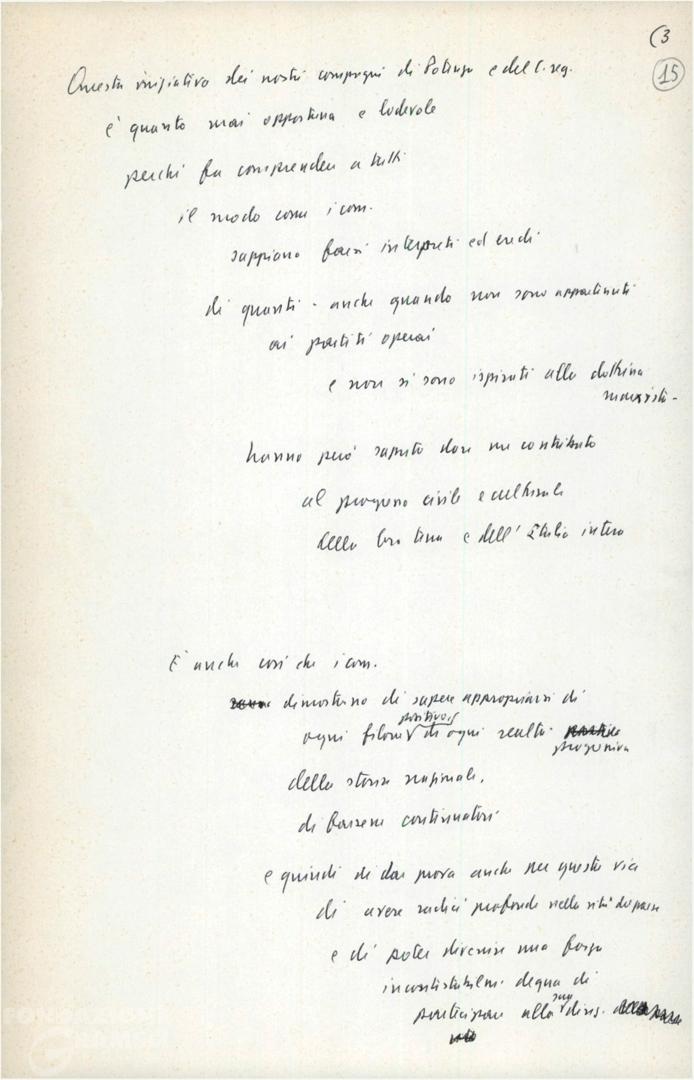 (3
15
Questa iniziativa dei nostri compagni di Potenza e del C. reg.
è quanto mai opportuna e lodevole
perché fa comprendere a tutti
il modo come i com.
sappiano farsi interpreti ed eredi
di quanti - anche quando non sono appartenuti
ai partiti operai
e non si sono ispirati alla dottrina
marxista -
hanno però saputo dare un contributo
al progresso civile e culturale
della loro terra e dell'Italia intera
E' anche così che i com.
dimostrano di sapere appropriarsi di
ogni filone positivo di ogni realtà
progressiva
della storia nazionale,
di farsene continuatori
e quindi di dar prova anche per questa via
di avere radici profonde nella vita del paese
e di poter divenire una forza
incontestabilm. degna di
partecipare alla sua direz.